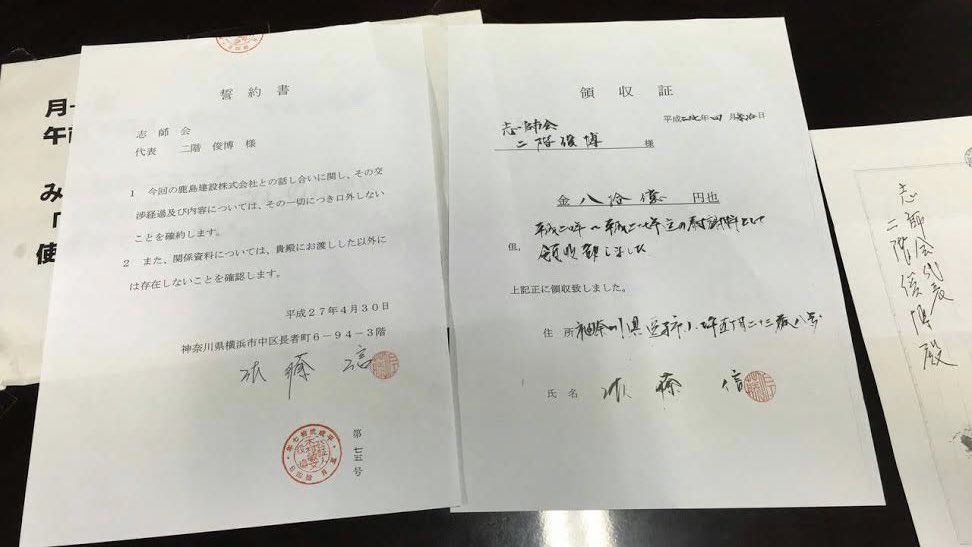 月
午
み
「
使
誓約書
志師会
代表 二階 俊博 様
1 今回の鹿島建設株式会社との話し合いに関し、その交
渉経過及び内容については、その一切につき口外しない
ことを確約します。
2 また、関係資料については、貴殿にお渡しした以外に
は存在しないことを確認します。
平成27年4月30日
神奈川県横浜市中区長者町6-94-3階
佐藤 信
第七五号
領収証
平成二七年四月
日
志師会
二階俊博 様
金 八拾億 円也
但、平成二〇年〜平成二七年迄の慰謝料として
領収致しました
上記正に領収致しました。
住所 神奈川県
氏名 佐藤 信
志師会代表
二階俊博殿